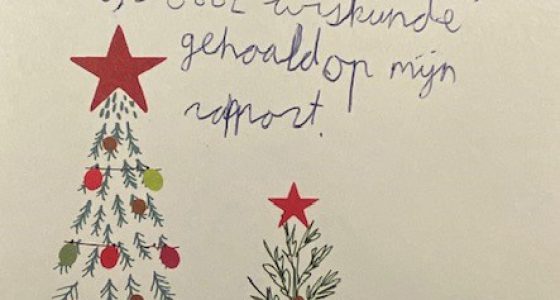 voor wiskunde
gehaald op mijn
rapport.